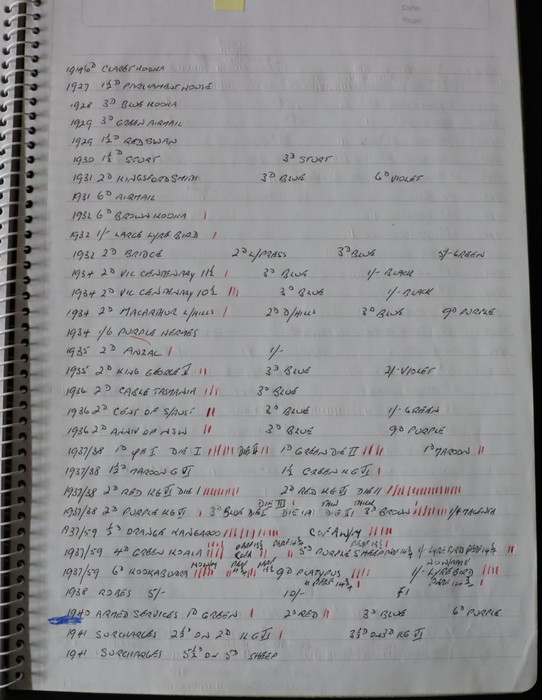 Date
Page
1914 6D CLARET KOOKA
1927 1½D PARLIAMENT HOUSE
1928 3D BLUE KOOKA
1929 3D GREEN AIRMAIL
1929 1½D RED SWAN
1930 1½D STURT 3D STURT
1931 2D KINGSFORD SMITH 3D BLUE 6D VIOLET
1931 6D AIRMAIL
1932 6D BROWN KOOKA
1932 1/- LARGE LYRE BIRD
1932 2D BRIDGE 2D L/PRESS 3D BLUE 5/- GREEN
1934 2D VIC CENTENARY 11½ 3D BLUE 1/- BLACK
1934 2D VIC CENTENARY 10½ 3D BLUE 1/- BLACK
1934 2D MACARTHUR L/HILLS 2D D/HILLS 3D BLUE 9D PURPLE
1934 1/6 PURPLE HERMES
1935 2D ANZAC 1/-
1935 2D KING GEORGE V 3D BLUE 2/- VIOLET
1936 2D CABLE TASMANIA 3D BLUE
1936 2D CENT OF S/AUST 3D BLUE 1/- GREEN
1936 2D ANNIV OF NSW 3D BLUE 9D PURPLE
1937/38 1D DIE I DIE II 1D GREEN DIE II 1D MAROON
1937/38 1½D MAROON G VI 1½ GREEN KG VI
1937/38 2D RED KG VI DIE I 2D RED KG VI DIE II
DIE III THIN THICK
1937/38 2D PURPLE KG VI 3D BLUE DIE I DIE IA DIE II 3D BROWN 1/4 MAGENTA
1937/59 ½D ORANGE KANGAROO C OF A W/M
1937/59 4D GREEN KOALA 5D PURPLE SHEEP 1/- LYREBIRD
NO W/MARK
1937/59 6D KOOKABURRA 9D PLATYPUS 1/- LYREBIRD
1938 ROBES 5/- 10/- £1
1940 ARMED SERVICES 1D GREEN 2D RED 3D BLUE 6D PURPLE
1941 SURCHARGES 2½D ON 2D KG VI 3½D ON 3D KG VI
1941 SURCHARGES 5½D ON 5D SHEEP